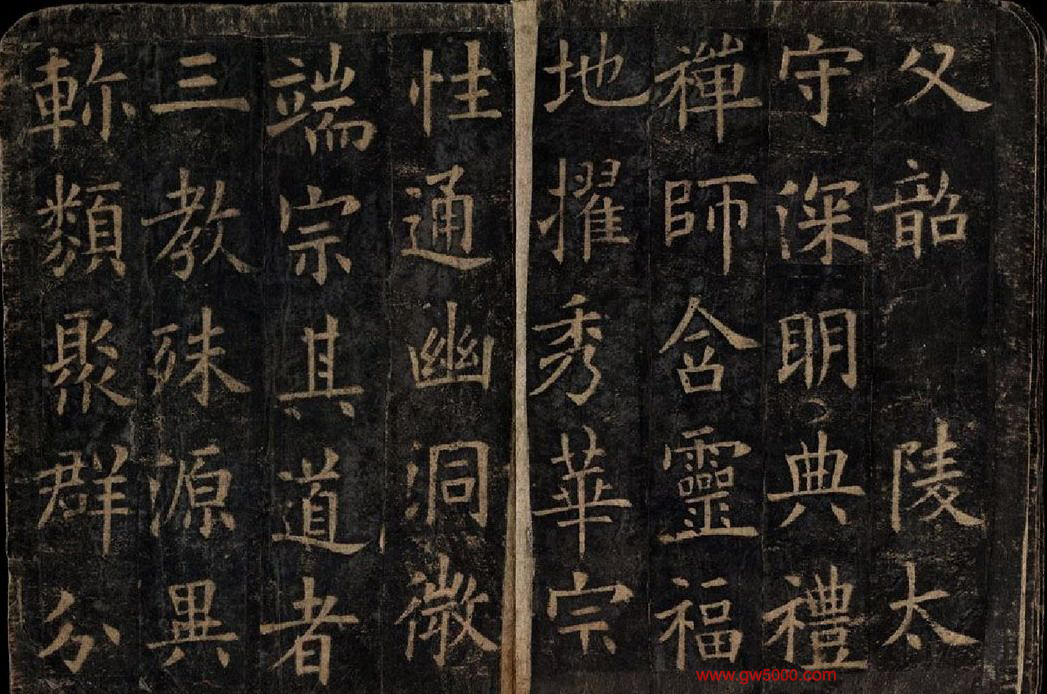 父韶 陵太
守深明典禮
禪師含靈福
地擢秀華宗
性通幽洞微
端宗其道者
三教殊源異
軫類聚群分
www.gw5000.com